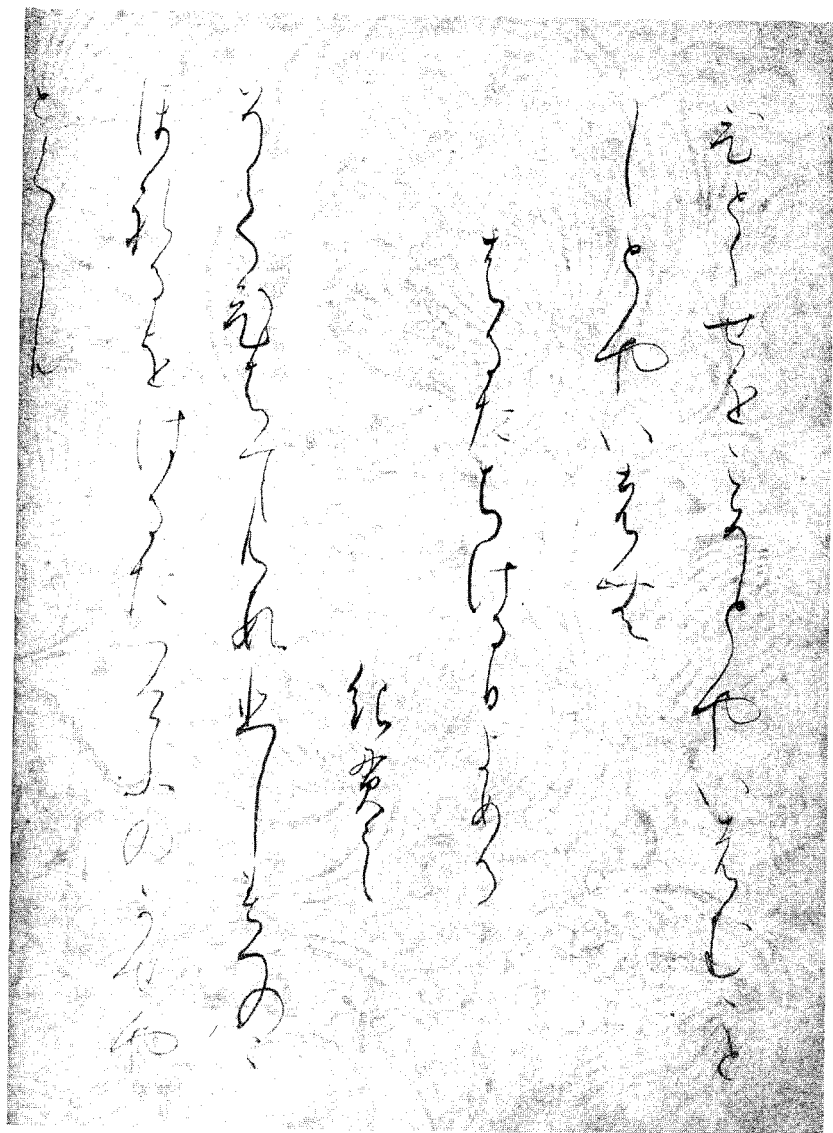 ひとゝせをこそとやいはむこと
しとやいはむ
はるたちける日よめる
紀貫之
そてひちてむすひしみつのこ
ほれるをはるたつけふのかせや
とくらむ